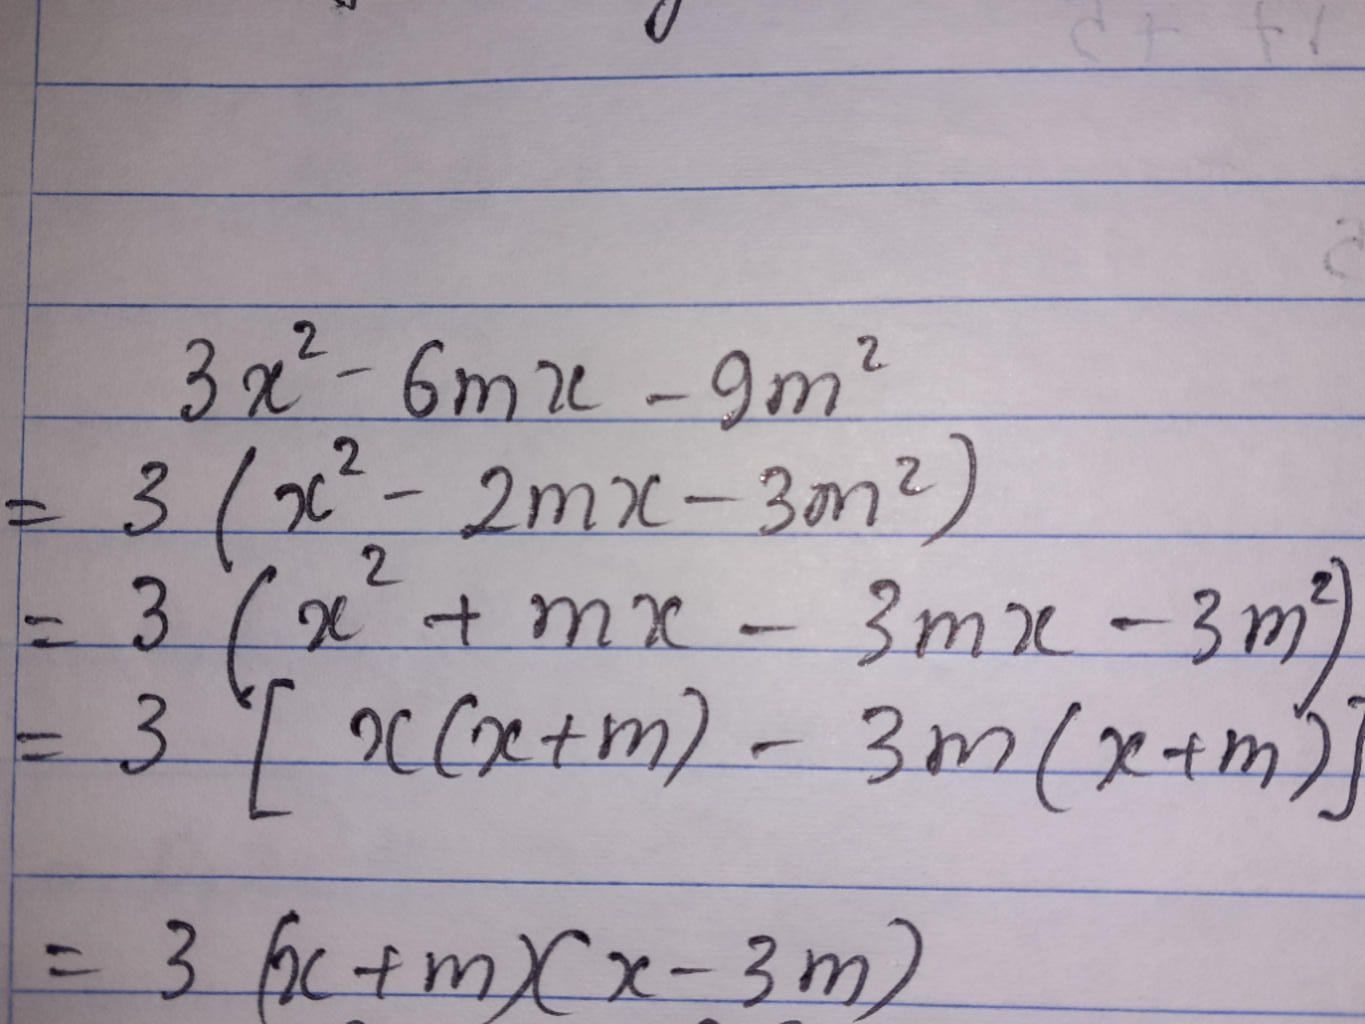 3x² - 6mx - 9m²
= 3 (x² - 2mx - 3m²)
= 3 (x² + mx - 3mx - 3m²)
= 3 [ x(x+m) - 3m(x+m)]
= 3 (x+m)(x-3m)